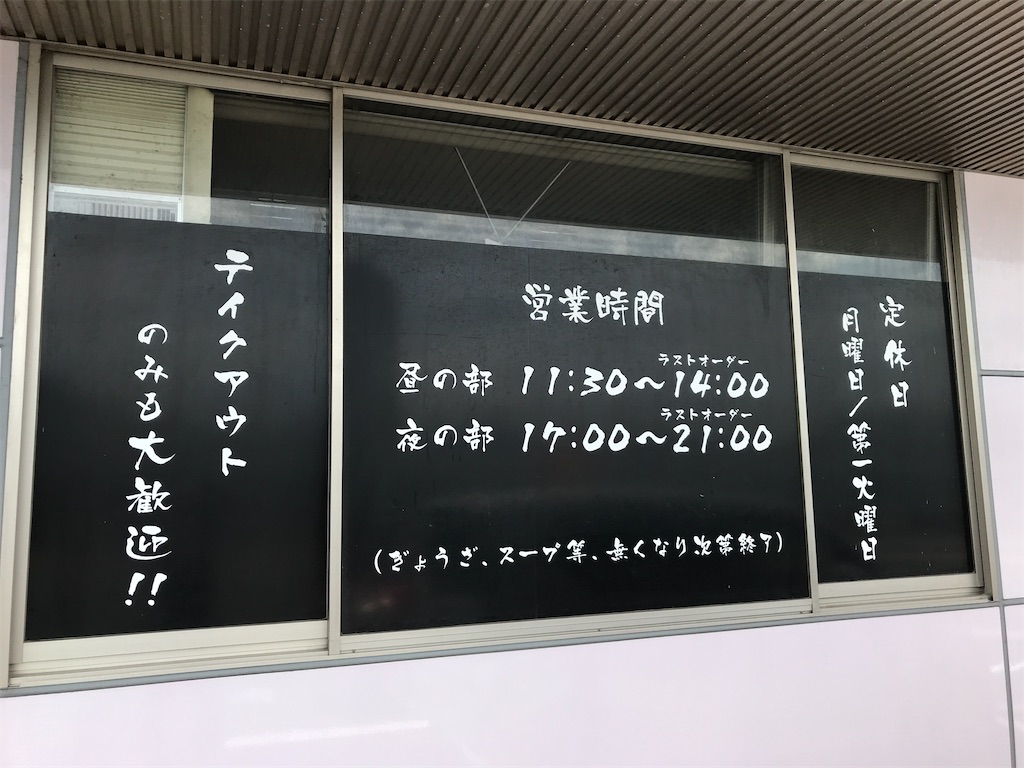 テイクアウト
のみも大歓迎!!
営業時間
ラストオーダー
昼の部 11:30〜14:00
ラストオーダー
夜の部 17:00〜21:00
(ぎょうざ、スープ等、無くなり次第終了)
定休日
月曜日/第一火曜日